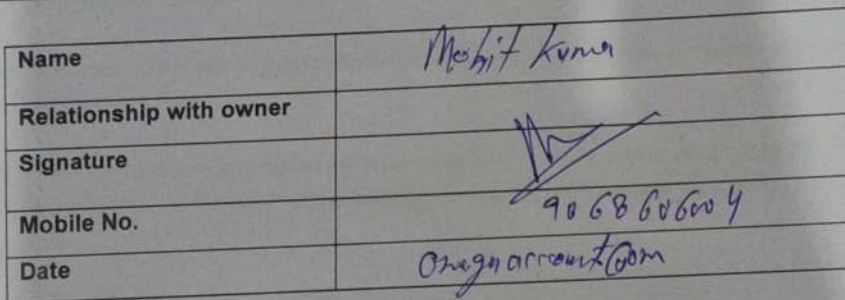 Name Mohit Kumar
Relationship with owner
Signature
Mobile No. 9068606004
Date